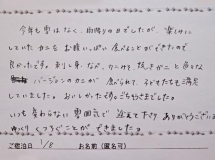 今年も雪はなく、雨降りの日でしたが、楽しみに
していたカニをお腹いっぱい食べることができたので
良かったです。刺し身、なべ、カニみそ、焼きガニと色々な
バージョンのカニが食べられて、子どもたちも満足
していました。おいしかったです。ごちそうさまでした。
いつも変わらない雰囲気で迎えて下さりありがとうございます
ゆっくりくつろぐことができました。
ご宿泊日 1/8 お名前(匿名可)